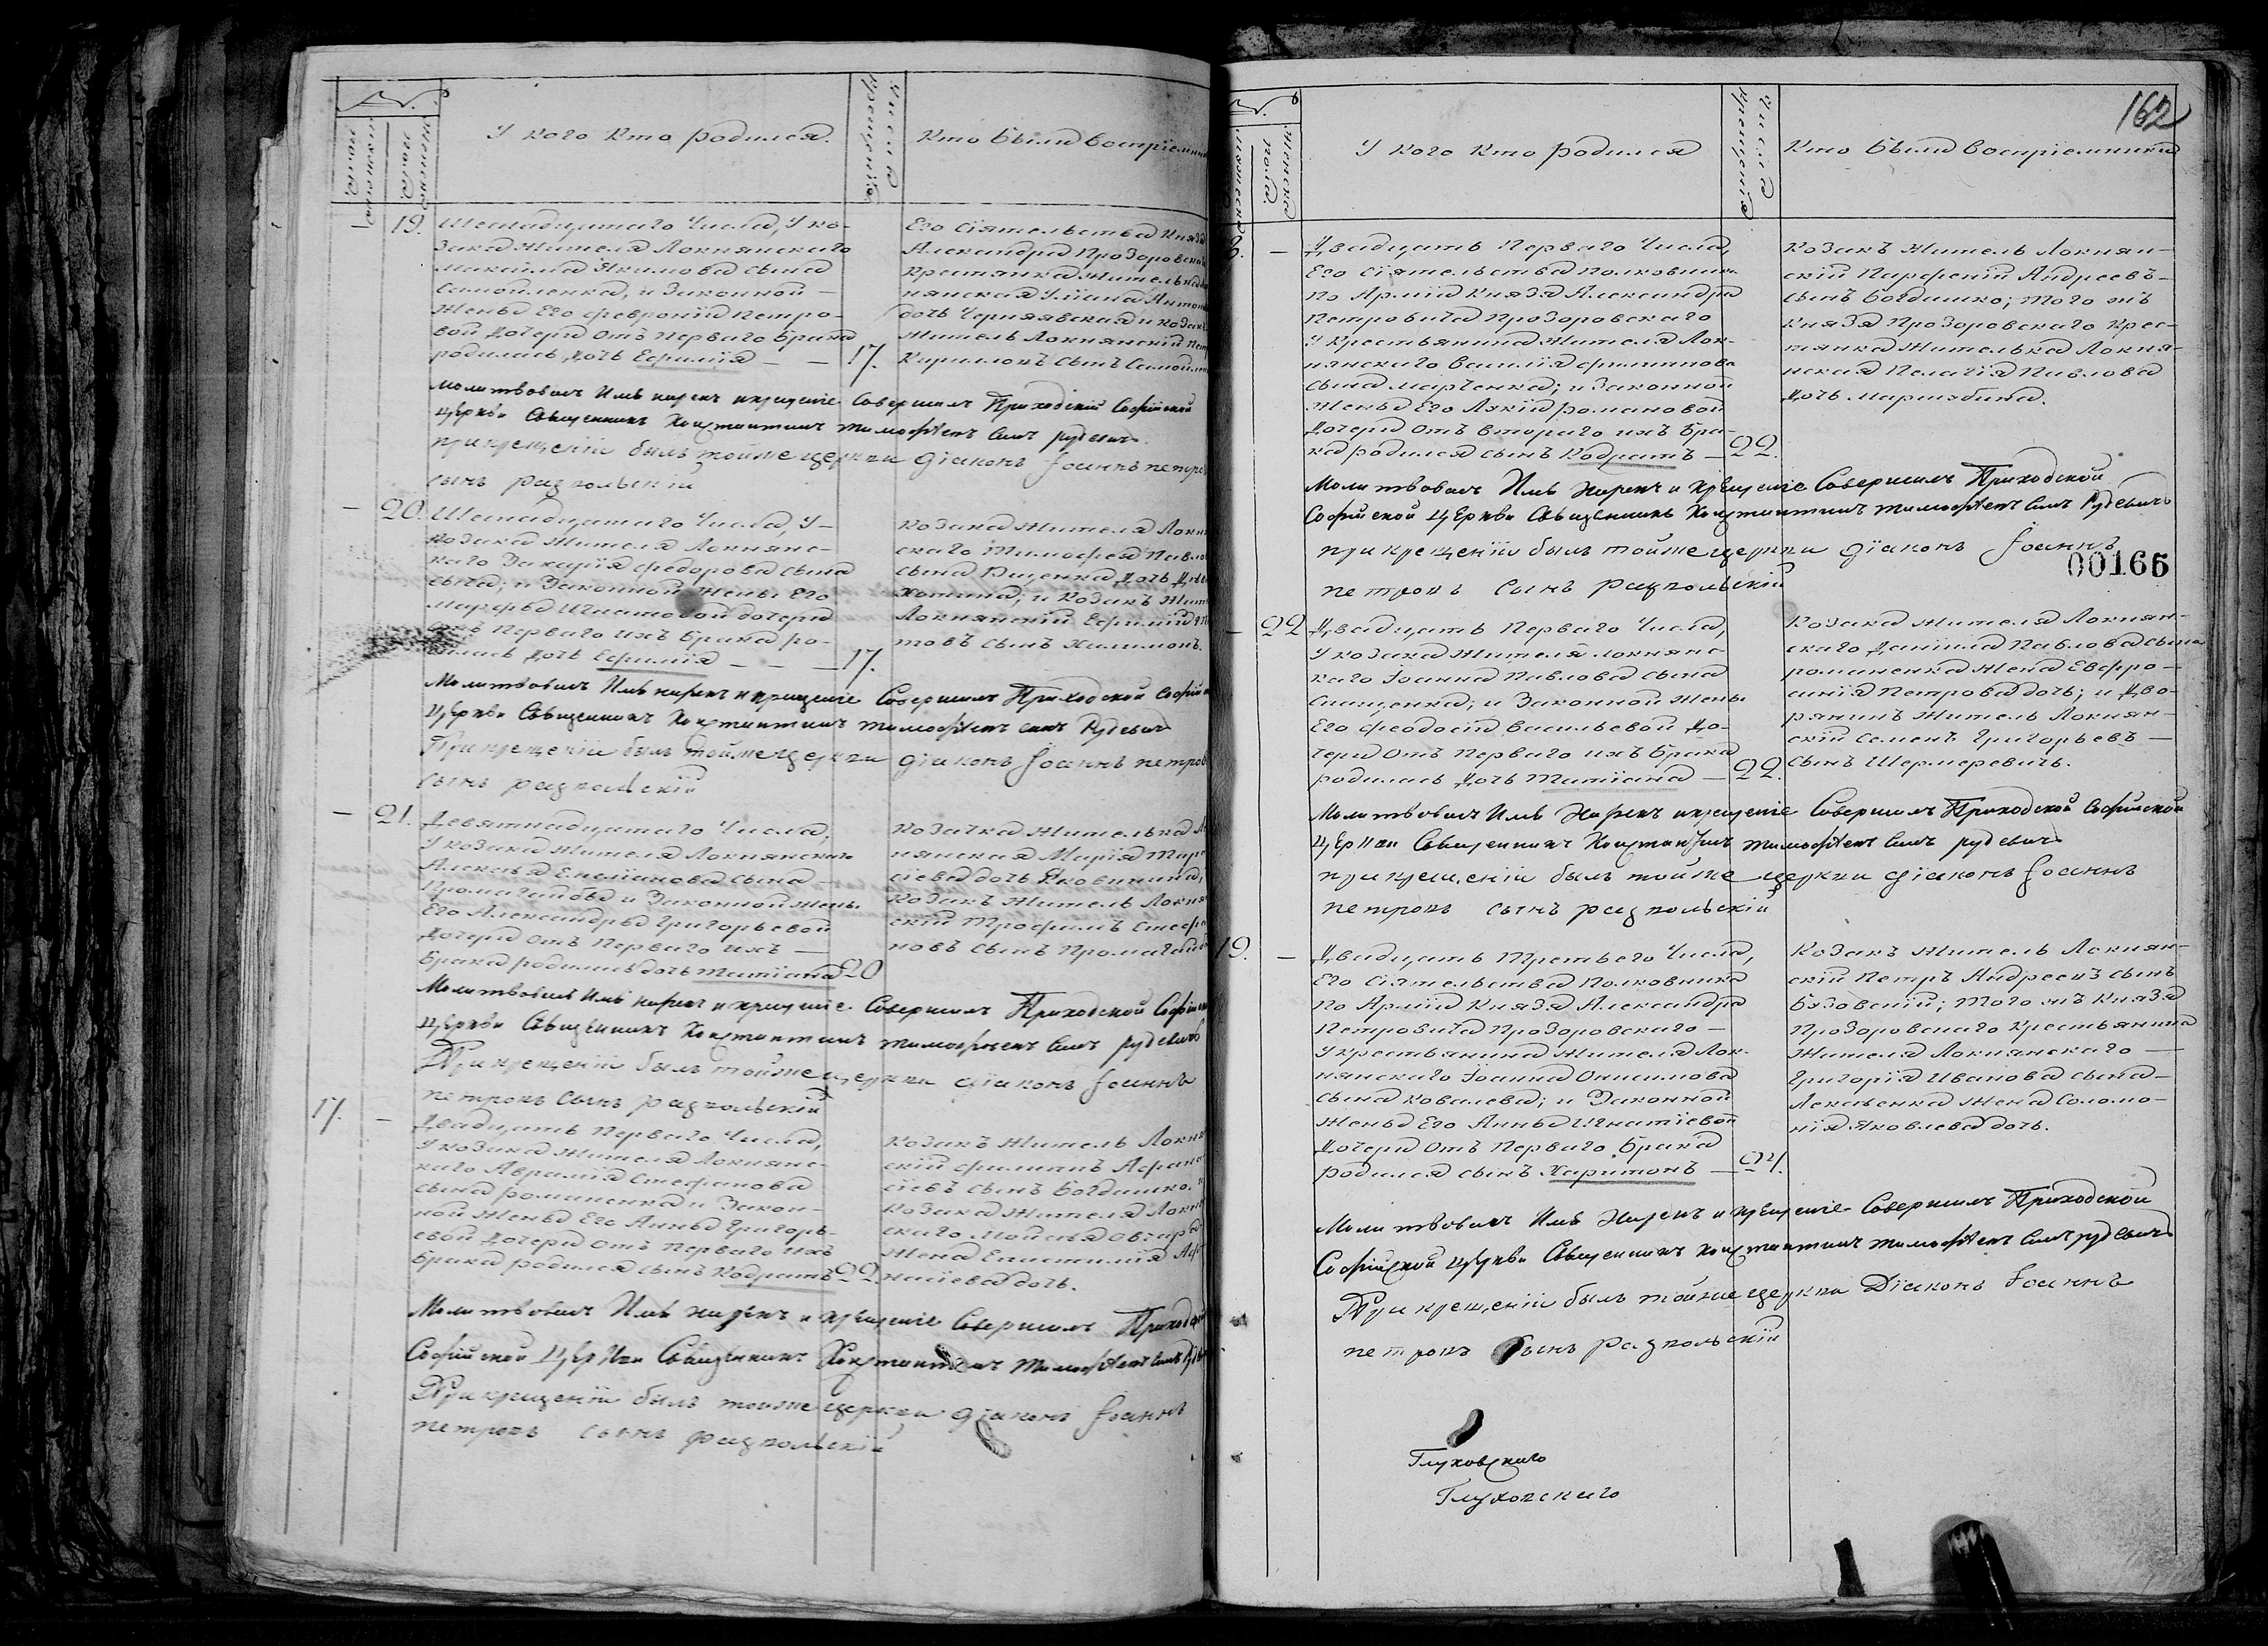 №
мужеска пола
женска пола
У кого кто родился.
Число крещенія
Кто были воспріемни
19.
Шеснадцатаго Числа, У ко-
зака Жителя Локнянскаго
Максима Якимова сына
Самойленка, и Законной —
Жены Его Февроніи Петро-
вой Дочери Отъ Перваго Брака
родилась Дочь Ефимія — — 17.
Его Сіятельства Князя
Александра Прозоровска
Крестьянка Жителька
нянская Уліана Антон
дочь Чернявская и козакъ
Житель Локнянскій Пет
Кирилловъ Сынъ Самойлен
Молитвовалъ Имя нарекъ и крещеніе Совершилъ Приходскій Софійской
Церкви Священникъ Константинъ Тимофѣевъ Сынъ Рудевичъ
при крещеніи былъ тойже церкви діаконъ Іоаннъ петро
сынъ раздольскій
— 20.
Шеснадцатаго Числа, У —
козака Жителя Локнянс-
каго Захарія Федорова сына
и Законной Жены Его
Марфы Игнатовой дочери
отъ Перваго ихъ Брака ро-
дилась Дочь Ефимія — — 17.
козака Жителя Локн
скаго Тимофея Павло
сына Дочь
и Козакъ Жит
Локнянскій Ефимій
товъ Сынъ Халимонъ.
Молитвовалъ Имя нарекъ и крещеніе Совершилъ Приходской Софій
Церкви Священникъ Константинъ Тимофѣевъ сынъ Рудевичъ
При крещеніи былъ тойже церкви діаконъ Іоаннъ петров
сынъ раздольскій
— 21.
Девятнадцатаго Числа,
У козака Жителя Локнянскаго
Алексѣя Емеліанова сына —
Промагайбы и Законной Жены
Его Александры Григорьевой
Дочери отъ Перваго ихъ —
Брака родилась дочь Татіана 20
Козачка Жителька Л
нянская Марія
сіева дочь Яковинина,
Козакъ Житель Локня
скій Трофимъ Стефа
новъ сынъ Промагайб
Молитвовалъ Имя нарекъ и крещеніе Совершилъ Приходской Софійс
Церкви Священникъ Константинъ Тимофѣевъ Сынъ Рудевичъ
При крещеніи былъ тойже церкви діаконъ Іоаннъ
петровъ Сынъ раздольскій
17. —
Двадцать Перваго Числа,
У козака Жителя Локнянс-
каго Аврамія Стефанова
сына романенка и Закон-
ной Жены Его Анны Григорь-
евой Дочери Отъ Перваго ихъ
Брака родился сынъ Кодратъ 22
Козакъ Житель Локня
скій Филипъ Афана
сіевъ сынъ Богдашко, и
козака Жителя Локня
скаго Мойсея
Жена Епистимія Аф
насіева дочь.
Молитвовалъ Имя нарекъ и крещеніе Совершилъ Приходс
Софійской Церкви Священникъ Константинъ Тимофѣевъ Сынъ Руд
При крещеніи былъ тойже церкви діаконъ Іоаннъ
петровъ сынъ раздольскій
162
№
мужеска
женска пола
У кого кто родился
Число крещенія
Кто были воспріемники
8. —
Двадцать Перваго Числа,
Его Сіятельства Полковника
По Арміи Князя Александра
Петровича Прозоровскаго
У Крестьянина Жителя Лок-
нянскаго Василія Филипова
сына Марченка; и Законной
Жены Его Лукіи Романовой
Дочери Отъ втораго ихъ Бра-
ка родился сынъ Кодратъ — 22.
Козакъ Житель Локнян-
скій Парфеній Андреевъ —
сынъ Богдашко; Того жъ
Князя Прозоровскаго Крес-
тянка Жителька Локня-
нская Пелагія Павлова
Дочь Маршубина.
Молитвовалъ Имя Нарекъ и Крещеніе Совершилъ Приходской
Софійской Церкви Священникъ Константинъ Тимофѣевъ Сынъ Рудевичъ
при крещеніи былъ тойже церкви діаконъ Іоаннъ
00165
петровъ Сынъ раздольскій
— 22
Двадцать Перваго Числа,
У козака Жителя Локнянс-
каго Іоанна Павлова сына
и Законной Жены
Его Феодосіи Васильевой До-
чери Отъ Перваго ихъ Брака
родилась Дочь Татіана — 22.
Козака Жителя Локнян-
скаго Даніила Павлова сына
романенка Жена Евфро-
синія Петрова дочь; и Дво-
рянинъ Житель Локнян-
скій Семенъ Григорьевъ —
сынъ Шермеревичъ.
Молитвовалъ Имя Нарекъ и крещеніе Совершилъ Приходской Софійской
Церкви Священникъ Константинъ Тимофѣевъ Сынъ рудевичъ
при крещеніи былъ тойже церкви діаконъ Іоаннъ
петровъ сынъ раздольскій
19. —
Двадцать Третьего Числа,
Его Сіятельства Полковника
По Арміи Князя Александра
Петровича Прозоровскаго —
У крестьянина Жителя Лок-
нянскаго Іоанна Онисимова
сына Ковалева; и Законной
Жены Его Анны Игнатіевой
Дочери Отъ Перваго Брака
родился сынъ Харитонъ — 24.
Козакъ Житель Локнян-
скій Петръ Андреевъ сынъ
Бузовскій; Того жъ Князя
Прозоровскаго Крестьянина
Жителя Локнянскаго —
Григорія Иванова сына —
Лексѣенка Жена Соломо-
нія Яковлева дочь.
Молитвовалъ Имя Нарекъ и крещеніе Совершилъ Приходской
Софійской Церкви Священникъ Константинъ Тимофѣевъ Сынъ рудевичъ
При крещеніи былъ тойже церкви Діаконъ Іоаннъ
петровъ сынъ раздольскій
Глуховскаго
Глуховскаго